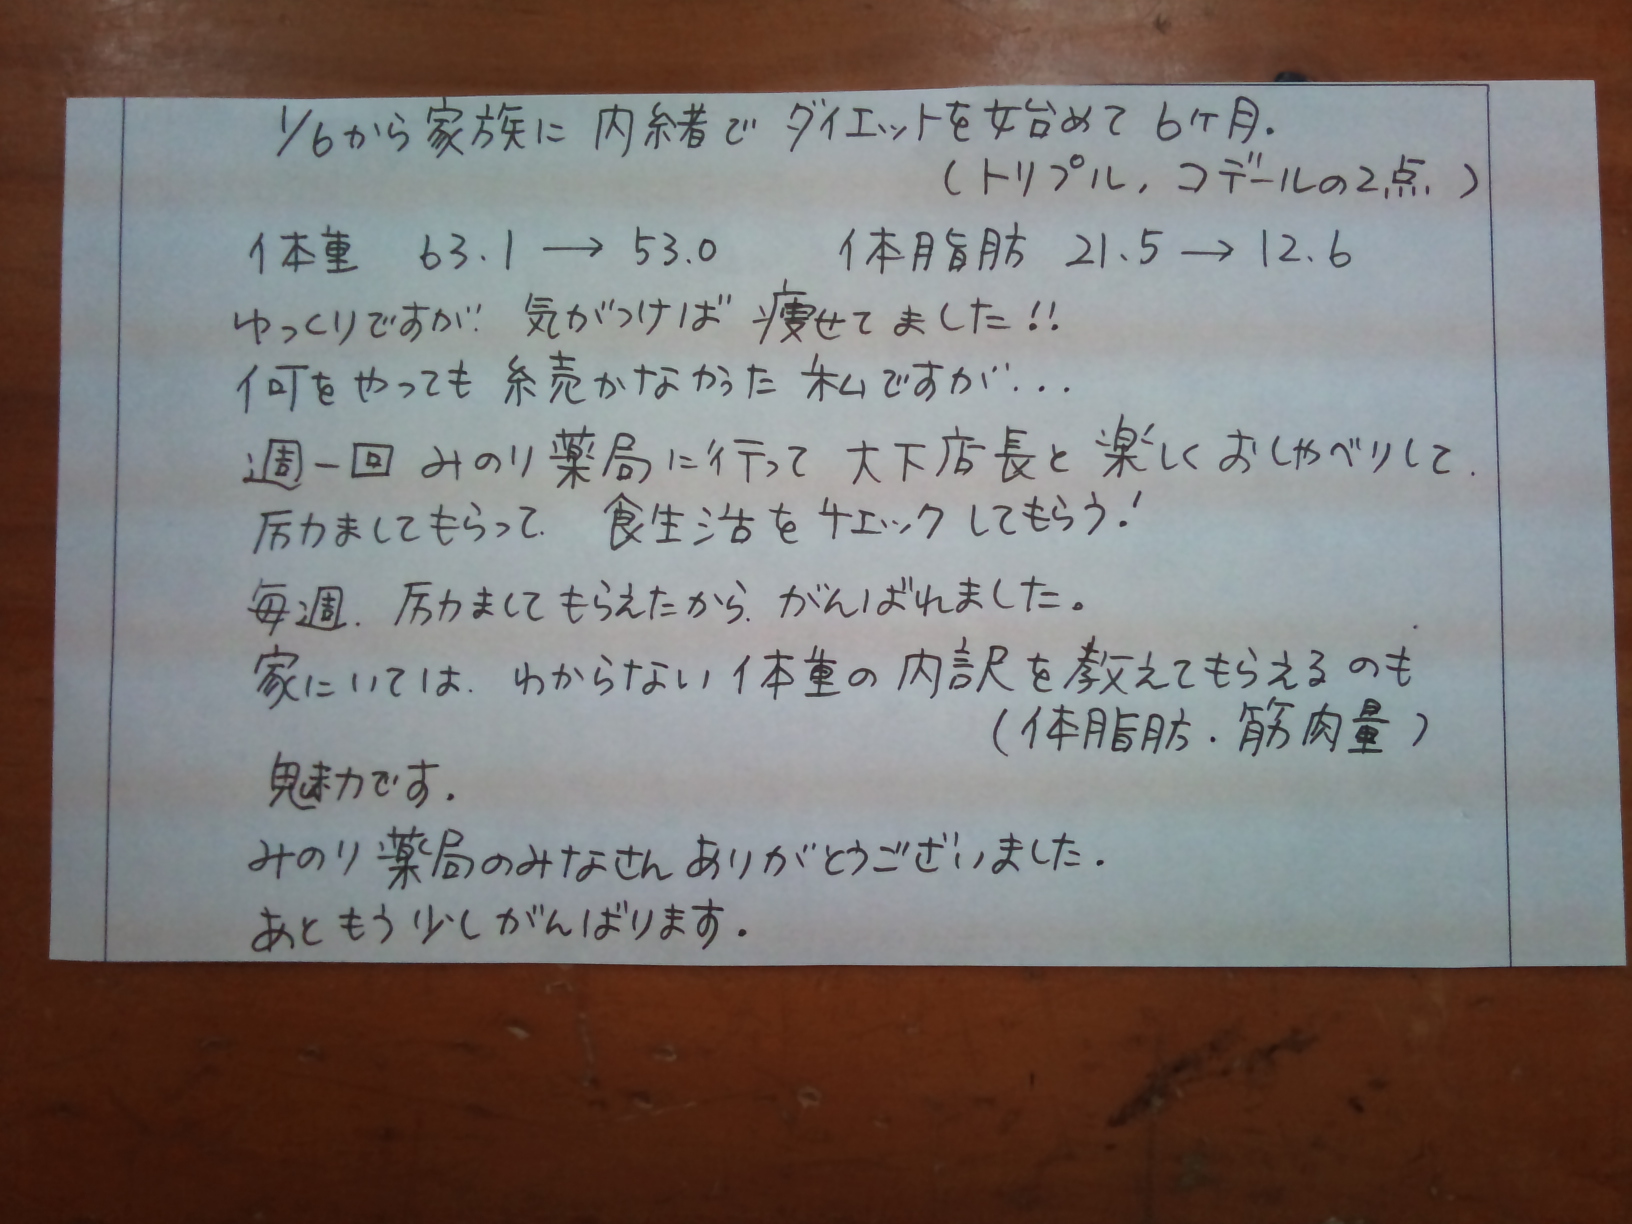 1/6から家族に内緒でダイエットを始めて6ヶ月.
(トリプル, コデールの2点)
体重 63.1→53.0 体脂肪 21.5→12.6
ゆっくりですが、気がつけば痩せてました!!
何をやっても続かなかった私ですが...
週一回みのり薬局に行って大下店長と楽しくおしゃべりして、
励ましてもらって、食生活をチェックしてもらう!
毎週、励ましてもらえたから、がんばれました。
家にいては、わからない体重の内訳を教えてもらえるのも
(体脂肪・筋肉量)
魅力です.
みのり薬局のみなさんありがとうございました.
あともう少しがんばります.